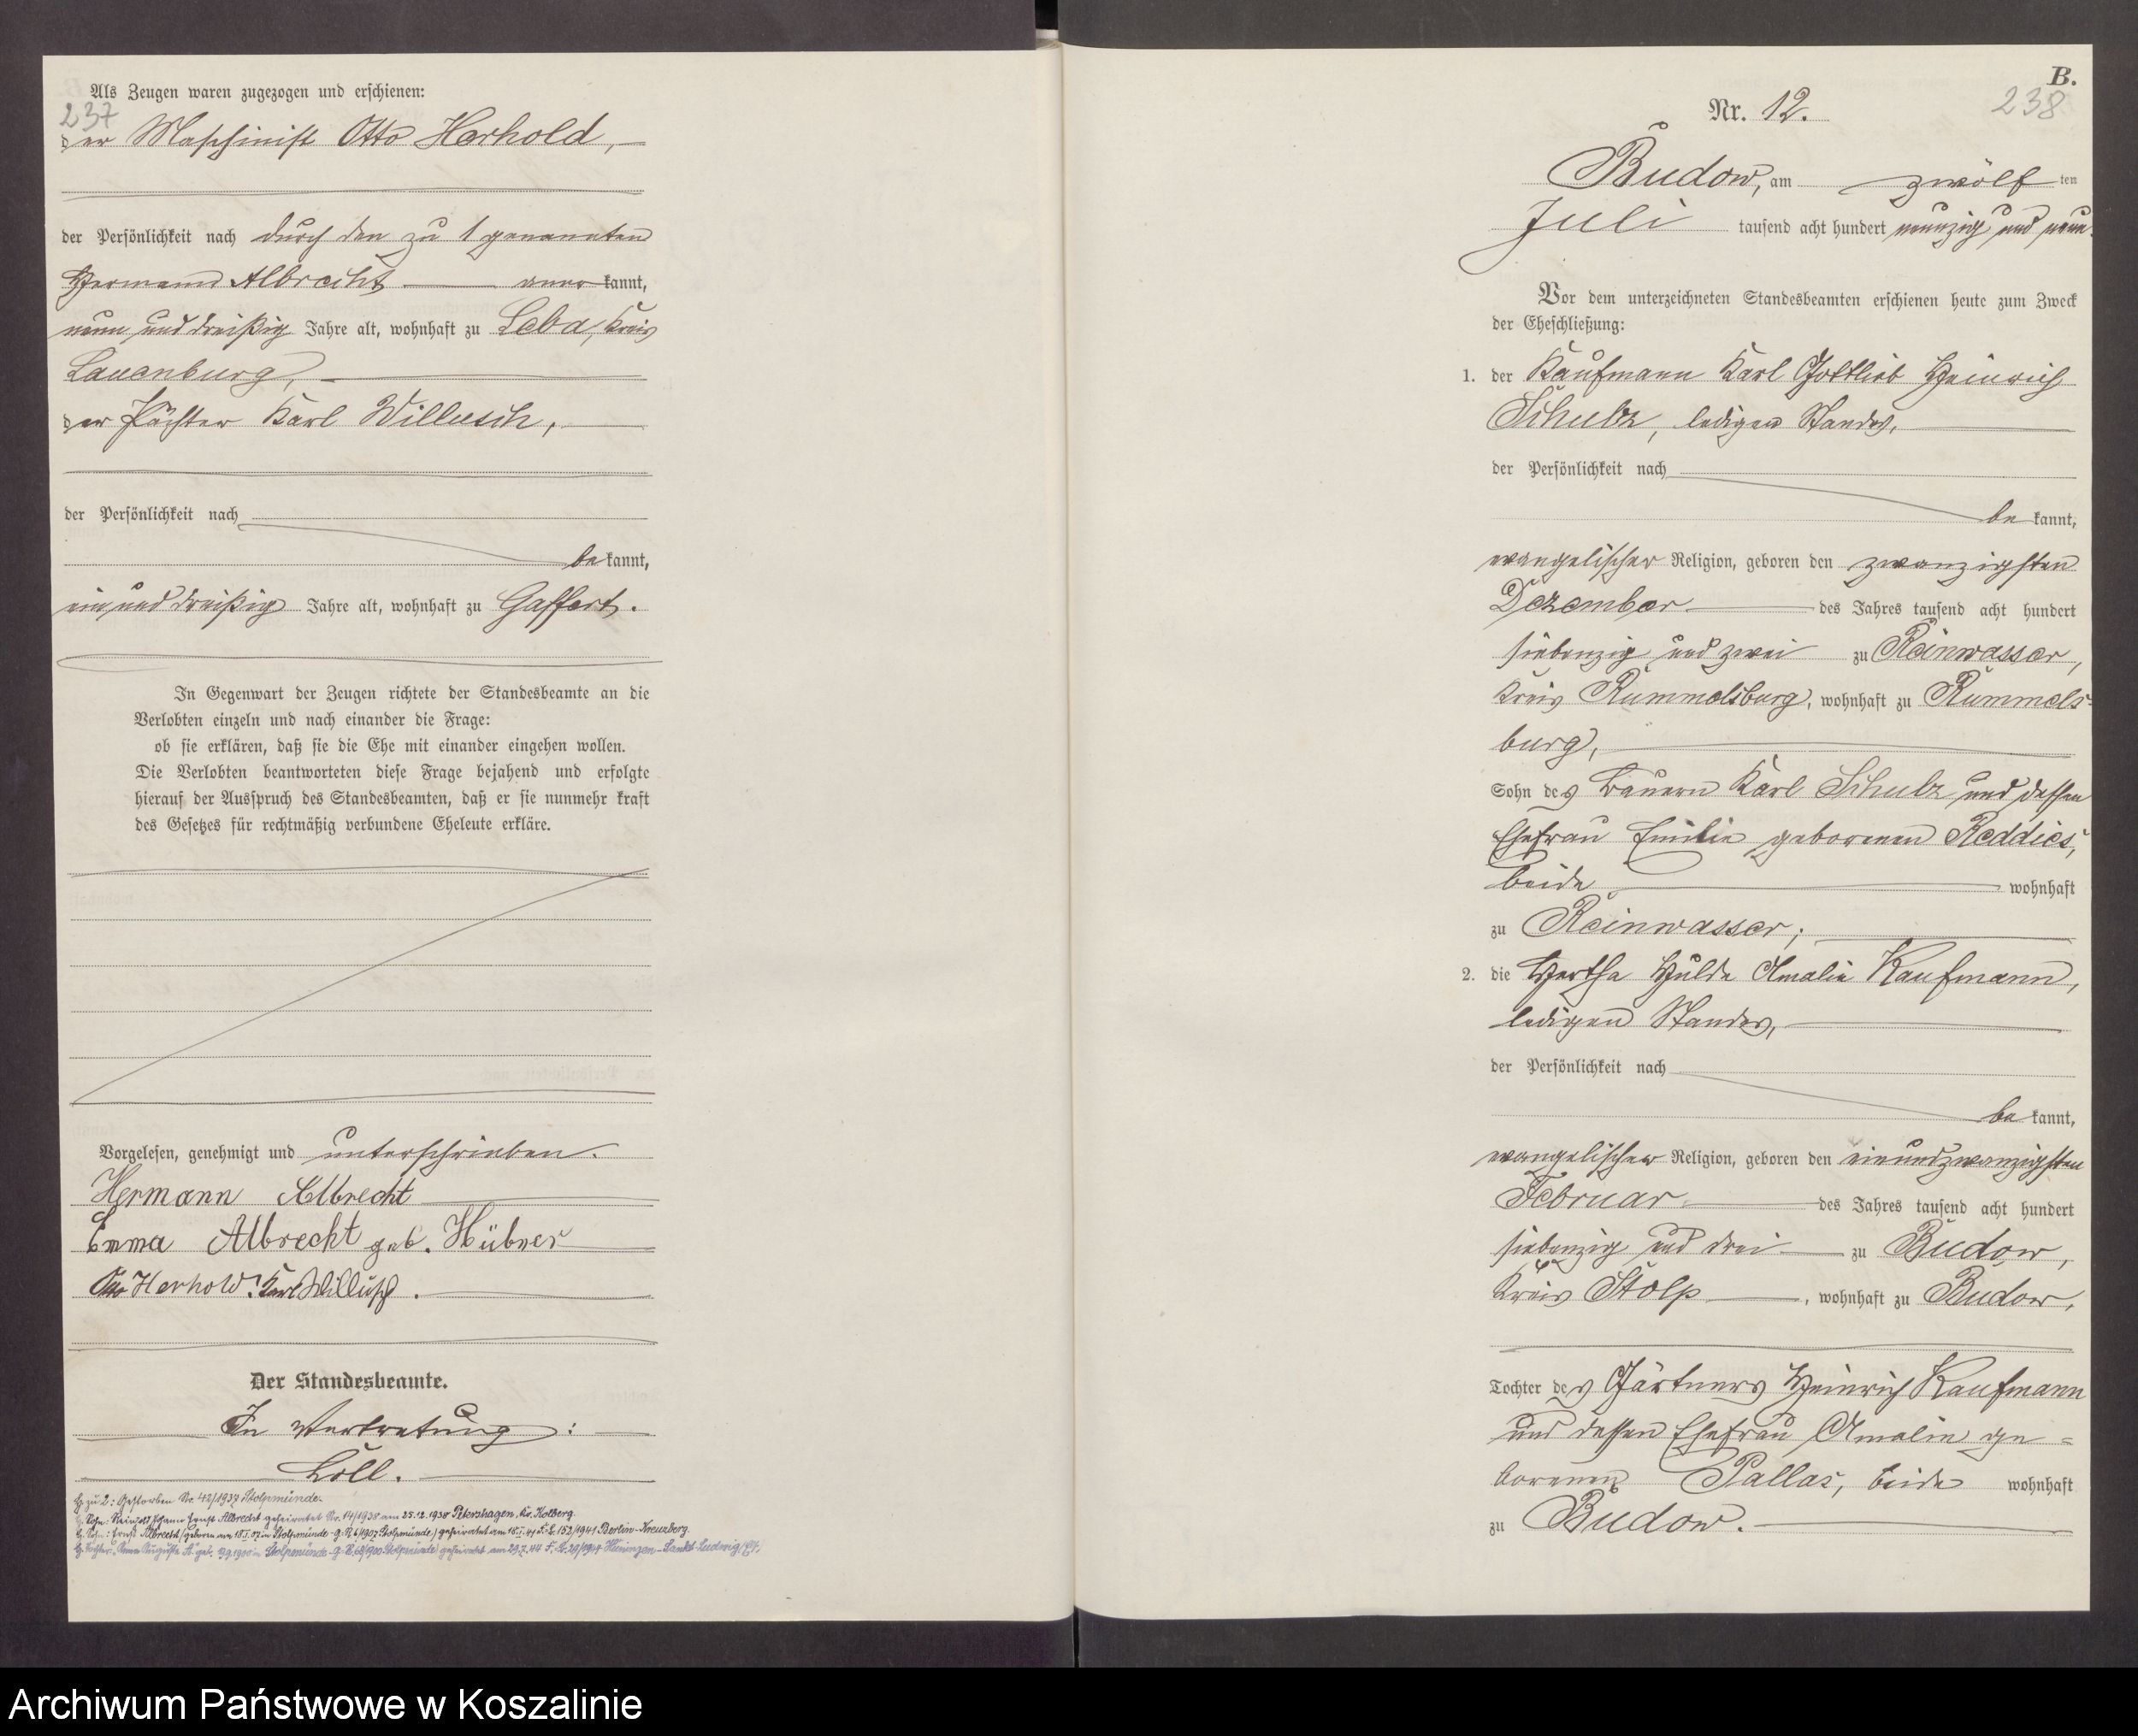 Als Zeugen waren zugezogen und erschienen:
237
der Maschinist Otto Herhold,
der Persönlichkeit nach durch den zu 1 genannten
Hermann Albrecht aner kannt,
neun und dreißig Jahre alt, wohnhaft zu Leba, Kreis
Lauenburg,
der Pächter Karl Willusch,
der Persönlichkeit nach
be kannt,
ein und dreißig Jahre alt, wohnhaft zu Gaffert.
In Gegenwart der Zeugen richtete der Standesbeamte an die
Verlobten einzeln und nach einander die Frage:
ob sie erklären, daß sie die Ehe mit einander eingehen wollen.
Die Verlobten beantworteten diese Frage bejahend und erfolgte
hierauf der Ausspruch des Standesbeamten, daß er sie nunmehr kraft
des Gesetzes für rechtmäßig verbundene Eheleute erkläre.
Vorgelesen, genehmigt und unterschrieben.
Hermann Albrecht
Emma Albrecht geb. Hübner
Otto Herhold. Karl Willusch.
Der Standesbeamte.
In Vertretung:
Löll.
zu 2: Gestorben Nr. 42/1937 Stolpmünde.
Sohn: Reinhold Johann Ernst Albrecht geheiratet Nr. 14/1938 am 25.12.1938 Petershagen, Kr. Kolberg.
Sohn: Ernst Albrecht (geboren am in Stolpmünde Stolpmünde) geheiratet am 152/1941 Berlin-Kreuzberg.
Tochter: Auguste geb. 1900 in Stolpmünde Stolpmünde) geheiratet am Hüningen-Sankt Ludwig
B.
238
Nr. 12.
Budow, am zwölf ten
Juli tausend acht hundert neunzig und neun.
Vor dem unterzeichneten Standesbeamten erschienen heute zum Zweck
der Eheschließung:
1. der Kaufmann Karl Gottlieb Heinrich
Schulz, ledigen Standes,
der Persönlichkeit nach
be kannt,
evangelischer Religion, geboren den zwanzigsten
Dezember des Jahres tausend acht hundert
siebenzig und zwei zu Reinwasser,
Kreis Rummelsburg, wohnhaft zu Rummels-
burg,
Sohn des Bauern Karl Schulz und dessen
Ehefrau Emilie geborenen Reddies,
beide wohnhaft
zu Reinwasser;
2. die Hertha Hulda Amalie Kaufmann,
ledigen Standes,
der Persönlichkeit nach
be kannt,
evangelischer Religion, geboren den einundzwanzigsten
Februar des Jahres tausend acht hundert
siebenzig und drei zu Budow,
Kreis Stolp, wohnhaft zu Budow,
Tochter des Gärtners Heinrich Kaufmann
und dessen Ehefrau Amalie ge=
borenen Pallas, beide wohnhaft
zu Budow.
Archiwum Państwowe w Koszalinie